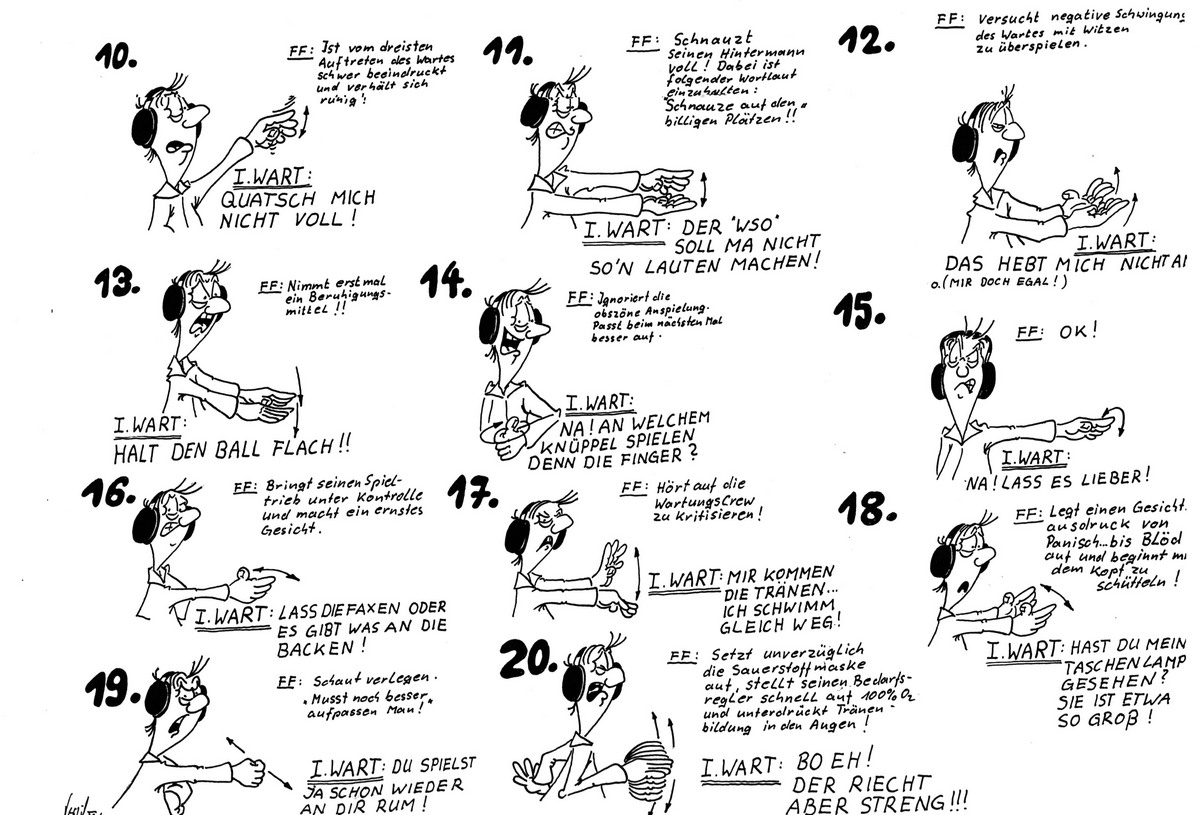 10.
FF: Ist vom dreisten
Auftreten des Wartes
schwer beeindruckt
und verhält sich
ruhig!
I.WART:
QUATSCH MICH
NICHT VOLL!
11.
FF: Schnauzt
seinen Hintermann
voll! Dabei ist
folgender Wortlaut
einzuhalten:
"Schnauze auf den
billigen Plätzen!!"
I.WART: DER "WSO"
SOLL MA NICHT
SO'N LAUTEN MACHEN!
12.
FF: Versucht negative Schwingun
des Wartes mit Witzen
zu überspielen.
I.WART:
DAS HEBT MICH NICHT AN
o.(MIR DOCH EGAL!)
13.
FF: Nimmt erstmal
ein Beruhigungs-
mittel!!
I.WART:
HALT DEN BALL FLACH!!
14.
FF: Ignoriert die
obszöne Anspielung.
Passt beim nächsten Mal
besser auf.
I.WART:
NA! AN WELCHEM
KNÜPPEL SPIELEN
DENN DIE FINGER?
15.
FF: OK!
I.WART:
NA! LASS ES LIEBER!
16.
FF: Bringt seinen Spiel-
trieb unter Kontrolle
und macht ein ernstes
Gesicht.
I.WART: LASS DIE FAXEN ODER
ES GIBT WAS AN DIE
BACKEN!
17.
FF: Hört auf die
Wartungscrew
zu kritisieren!
I.WART: MIR KOMMEN
DIE TRÄNEN...
ICH SCHWIMM
GLEICH WEG!
18.
FF: Legt einen Gesichts
ausdruck von
Panisch...bis Blöd
auf und beginnt mi
dem Kopf zu
schütteln!
I.WART: HAST DU MEIN
TASCHENLAMP
GESEHEN?
SIE IST ETWA
SO GROß!
19.
FF: Schaut verlegen.
"Musst noch besser
aufpassen Man!"
I.WART: DU SPIELST
JA SCHON WIEDER
AN DIR RUM!
20.
FF: Setzt unverzüglich
die Sauerstoffmaske
auf, stellt seinen Bedarfs-
regler schnell auf 100% O2
und unterdrückt Tränen-
bildung in den Augen!
I.WART: BO EH!
DER RIECHT
ABER STRENG!!!